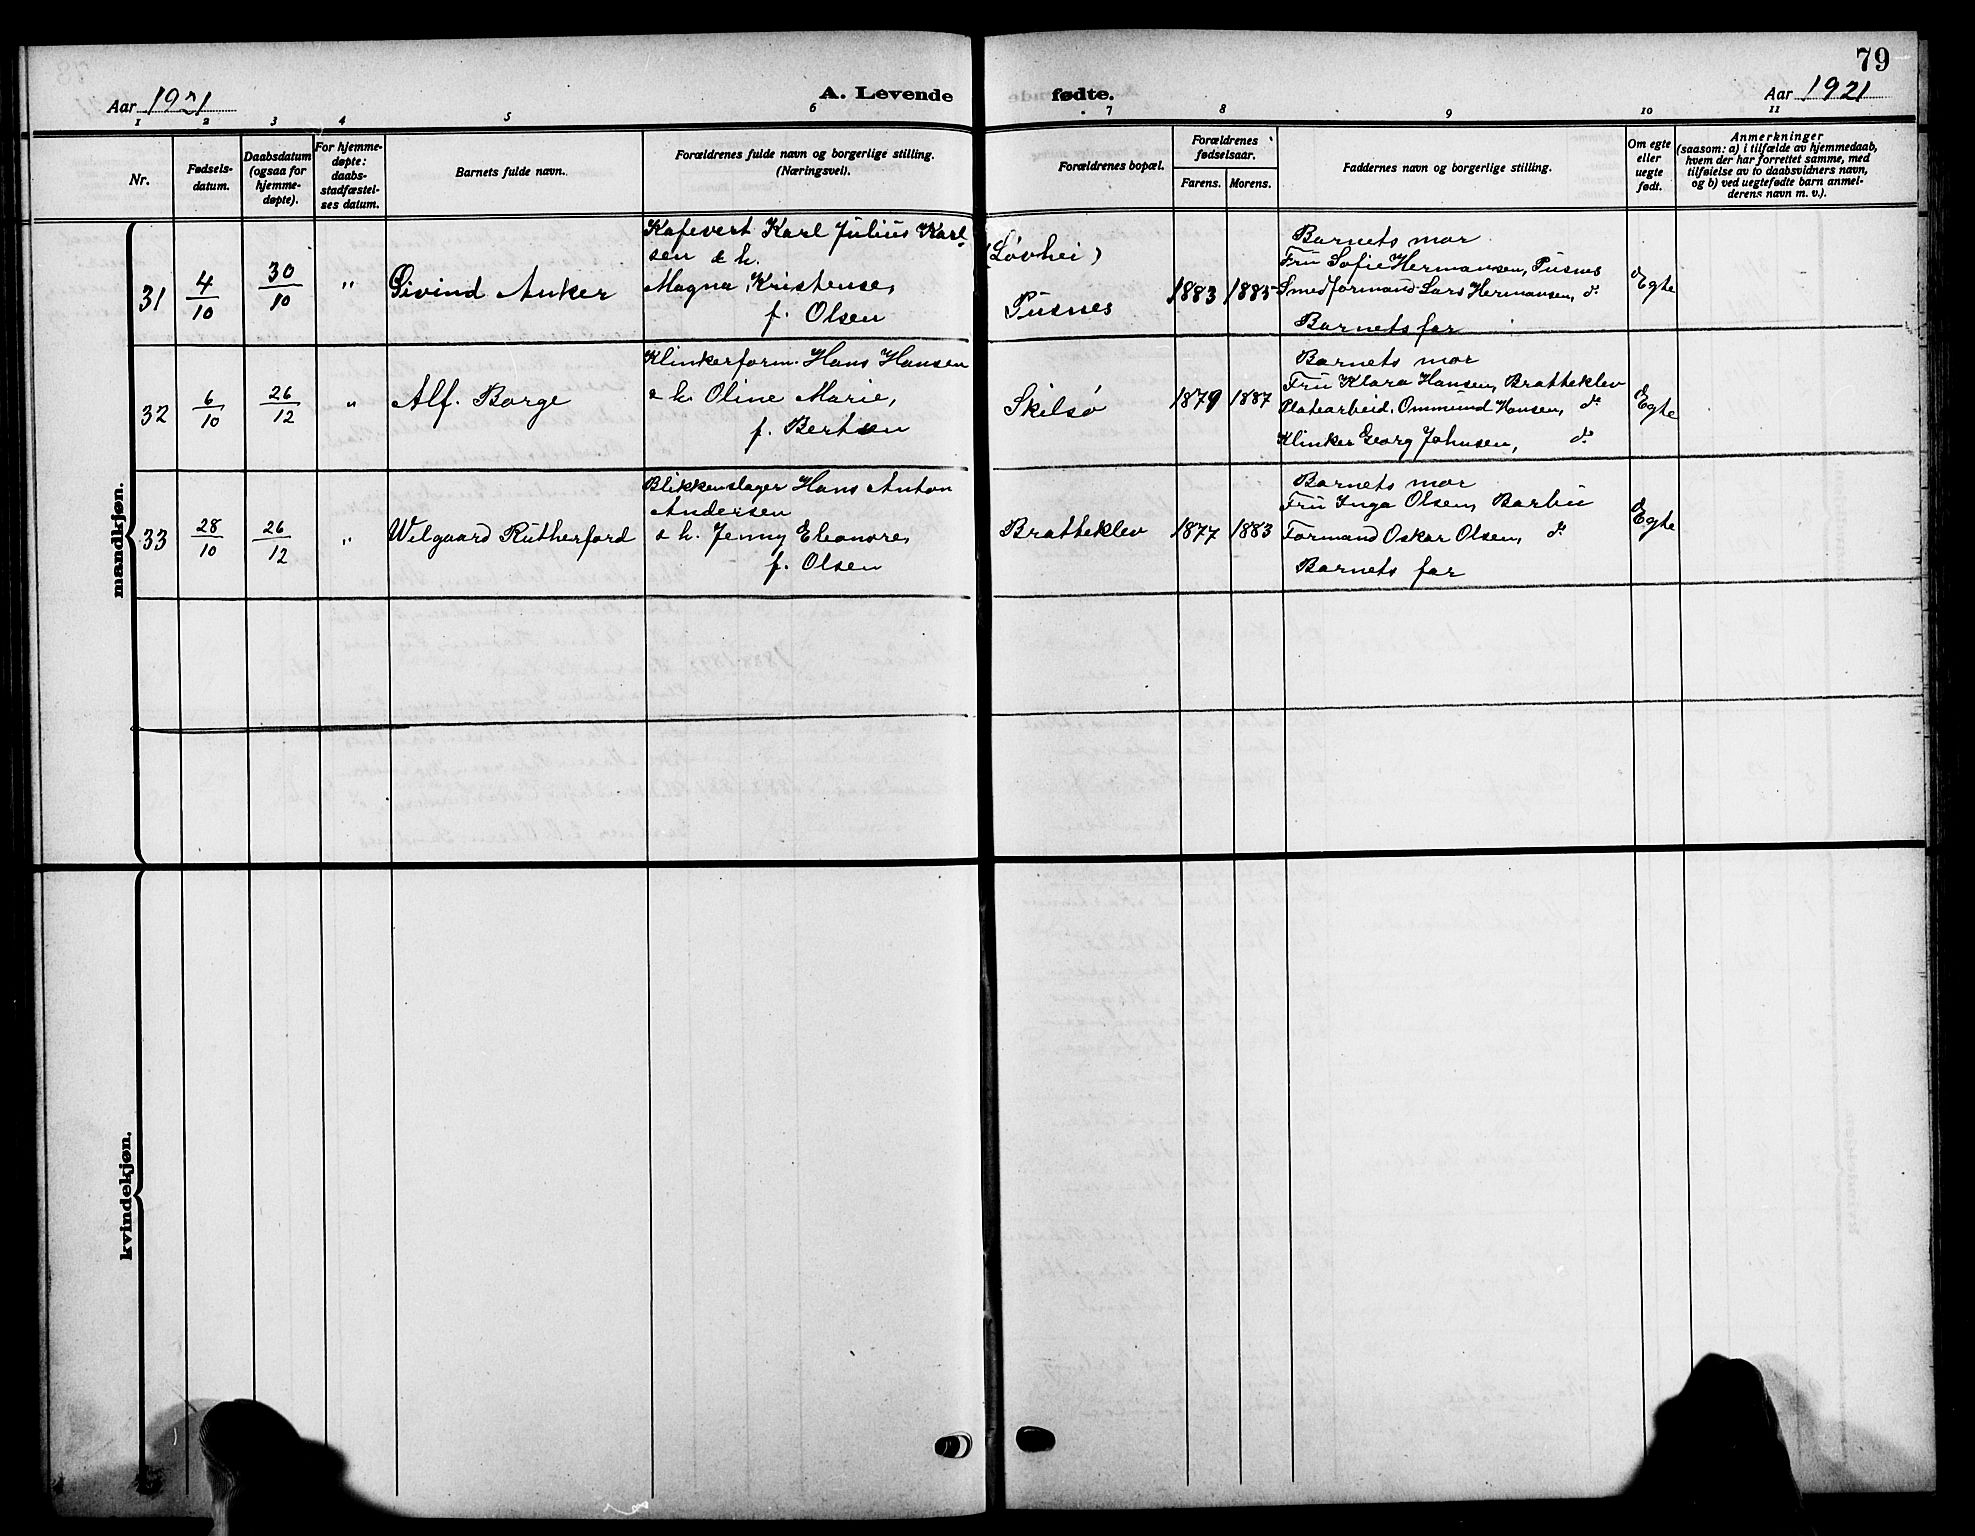 79
Aar 1921
A. Levende fødte.
Aar 1921
1 2 3 4 5 6 7 8 9 10 11
Nr.
Fødsels-
datum.
Daabsdatum
(ogsaa for
hjemme-
døpte).
For hjemme-
døpte:
daabs-
stadfæstel-
ses datum.
Barnets fulde navn.
Forældrenes fulde navn og borgerlige stilling.
(Næringsvei).
Forældrenes bopæl.
Forældrenes
fødselsaar.
Farens. Morens.
Faddernes navn og borgerlige stilling.
Om egte
eller
uegte
født.
Anmerkninger
(saasom: a) i tilfælde av hjemmedaab,
hvem der har forrettet samme, med
tilføielse av to daabsvidners navn,
og b) ved uegtefødte barn anmel-
derens navn m. v.).
mandkjøn.
31
4/10
30/10
"
Øivind Anker
Kafevert Karl Julius Karl-
sen & h.
Magna Kristense,
f. Olsen
(Løvhei)
Pusnes
1883 1885
Barnets mor
Fru Sofie Hermansen, Pusnes
Smedformand Lars Hermansen, do
Barnets far
Egte
32
6/10
26/12
"
Alf. Borge
Klinkerform. Hans Hansen
& h. Oline Marie,
f. Bertsen
Skilsø
1879 1887
Barnets mor
Fru Klara Hansen, Bratteklev
Platearbeid. Ommund Hansen, do
Klinker Georg Johnsen, do
Egte
33
28/10
26/12
"
Welgaard Rutherford
Blikkenslager Hans Anton
Andersen
& h. Jenny Eleonore,
f. Olsen
Bratteklev
1877 1883
Barnets mor
Fru Inga Olsen, Barbu
Formand Oskar Olsen, do
Barnets far
Egte
kvindekjøn.